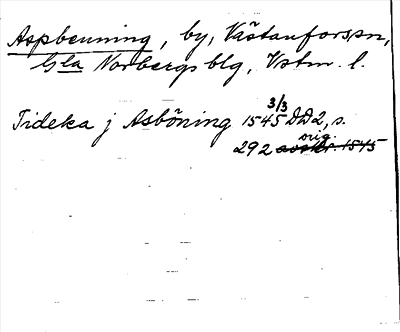 Aspbenning, by, Västanforssn,
Gla Norbergs blg, Vstm. l.
Tideka j Asböning 1545 3/3 DD2, s.
292 orig. avskr. 1545